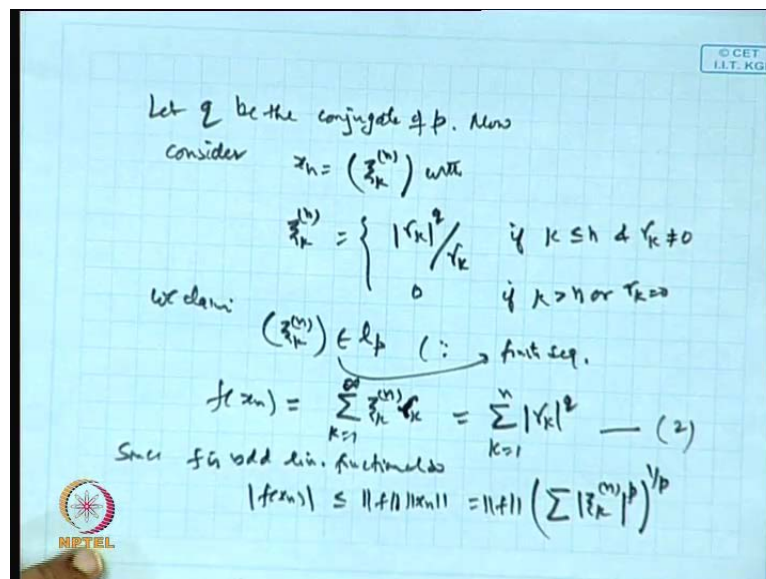 © CET
I.I.T. KGP
Let q be the conjugate of p. Now
consider x_n = (ξ_k^{(n)}) with
ξ_k^{(n)} = { |γ_k|^q / γ_k if k ≤ n & γ_k ≠ 0
0 if k > n or γ_k = 0
we claim
(ξ_k^{(n)}) ∈ l_p (∵ → finit seq.
f(x_n) = ∑_{k=1}^{∞} ξ_k^{(n)} γ_k = ∑_{k=1}^{n} |γ_k|^q — (2)
Since f is bdd lin. functional so
|f(x_n)| ≤ ||f|| ||x_n|| = ||f|| (∑ |ξ_k^{(n)}|^p)^{1/p}
NPTEL